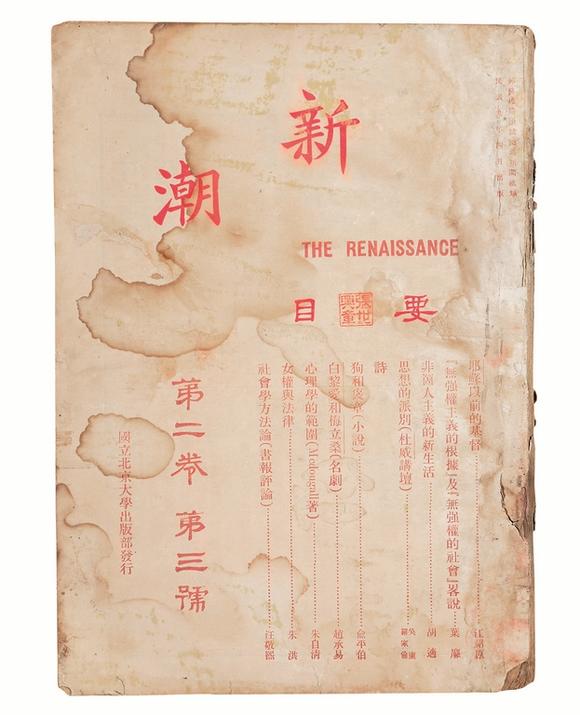 民國九年四月出版
新潮
THE RENAISSANCE
要目
耶穌以前的基督……江紹原
『無強權主義的根據』及『無強權的社會』畧說……葉麐
非個人主義的新生活……胡適
思想的派別(杜威講壇)……吳康 羅家倫
詩
狗和褒章(小說)……俞平伯
白黎愛和梅立桑(名劇)……趙承易
心理學的範圍(Mcdougall著)……朱自清
女權與法律……朱洪
社會學方法論(書報評論)……汪敬熙
第二卷 第三號
國立北京大學出版部發行